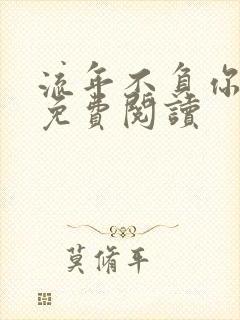 流年不負你
免費閱讀
莫脩平